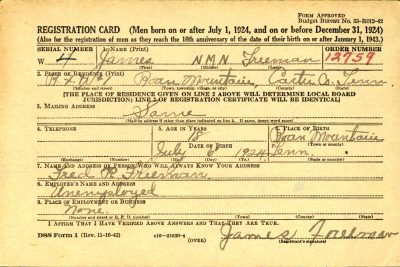 FORM APPROVED
Budget Bureau No. 33-R012-42
REGISTRATION CARD—(Men born on or after July 1, 1924, and on or before December 31, 1924)
(Also for the registration of men as they reach the 18th anniversary of the date of their birth on or after January 1, 1943.)
SERIAL NUMBER 1. NAME (Print) ORDER NUMBER
W 4 James NMN Freeman 12959
(First) (Middle) (Last)
2. PLACE OF RESIDENCE (Print)
Roan Mountain, Carter Co. Tenn
(Number and street) (Town, township, village, or city) (County) (State)
[THE PLACE OF RESIDENCE GIVEN ON LINE 2 ABOVE WILL DETERMINE LOCAL BOARD
JURISDICTION; LINE 2 OF REGISTRATION CERTIFICATE WILL BE IDENTICAL]
3. MAILING ADDRESS
Same
[Mailing address if other than place indicated on line 2. If same, insert word same]
4. TELEPHONE 5. AGE IN YEARS 6. PLACE OF BIRTH
18 Roan Mountain
DATE OF BIRTH (Town or county)
July 6 1924 Tenn.
(Exchange) (Number) (Mo.) (Day) (Yr.) (State or country)
7. NAME AND ADDRESS OF PERSON WHO WILL ALWAYS KNOW YOUR ADDRESS
Fred R. Freeman
8. EMPLOYER'S NAME AND ADDRESS
Unemployed
9. PLACE OF EMPLOYMENT OR BUSINESS
None.
(Number and street or R. F. D. number) (Town) (County) (State)
I AFFIRM THAT I HAVE VERIFIED ABOVE ANSWERS AND THAT THEY ARE TRUE.
DSS Form 1 (Rev. 11-16-42) (OVER) James Freeman
(Registrant's signature)